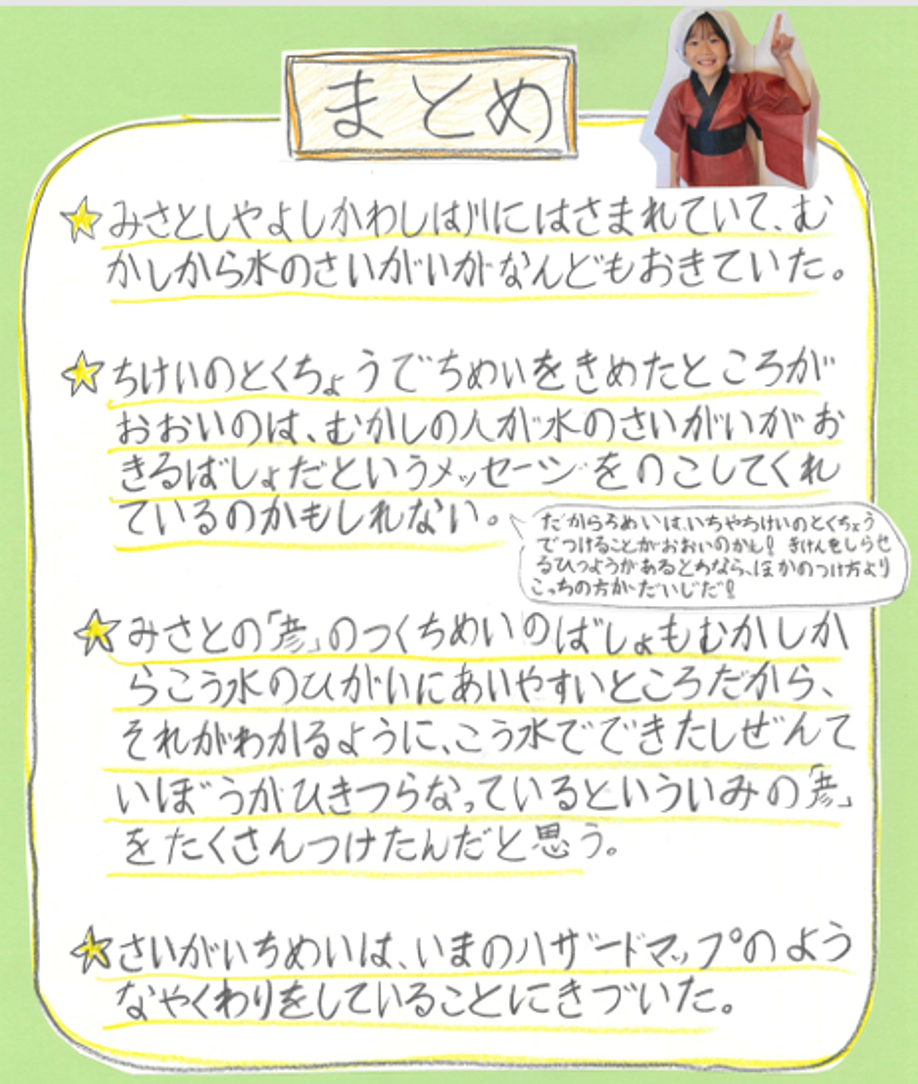 まとめ
みさとしやよしかわしは川にはさまれていて、む
かしから水のさいがいがなんどもおきていた。
ちけいのとくちょうでちめいをきめたところが
おおいのは、むかしの人が水のさいがいがお
きるばしょだというメッセージをのこしてくれ
ているのかもしれない。
だからちめいは、いちやちけいのとくちょう
でつけることがおおいのかも! きけんをしらせ
るひつようがあるとめなら、ほかのつけ方より
こっちの方がだいじだ!
みさとの「彦」のつくちめいのばしょもむかしか
らこう水のひがいにあいやすいところだから、
それがわかるように、こう水でできたしぜんて
いぼうがひきつらなっているといういみの「彦」
をたくさんつけたんだと思う。
さいがいちめいは、いまのハザードマップのよう
なやくわりをしていることにきづいた。